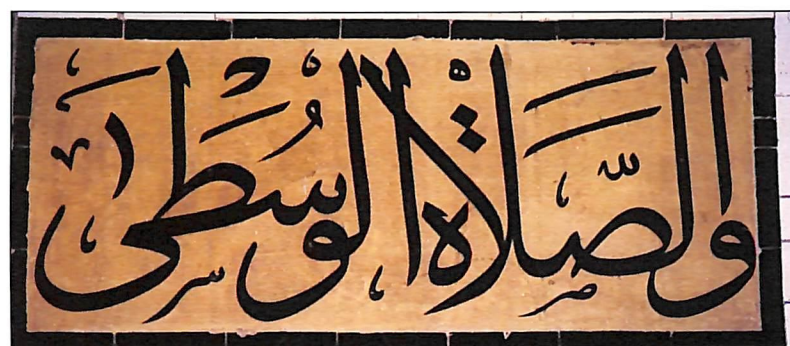 والصَّلَاةِ الْوُسْطَىٰ